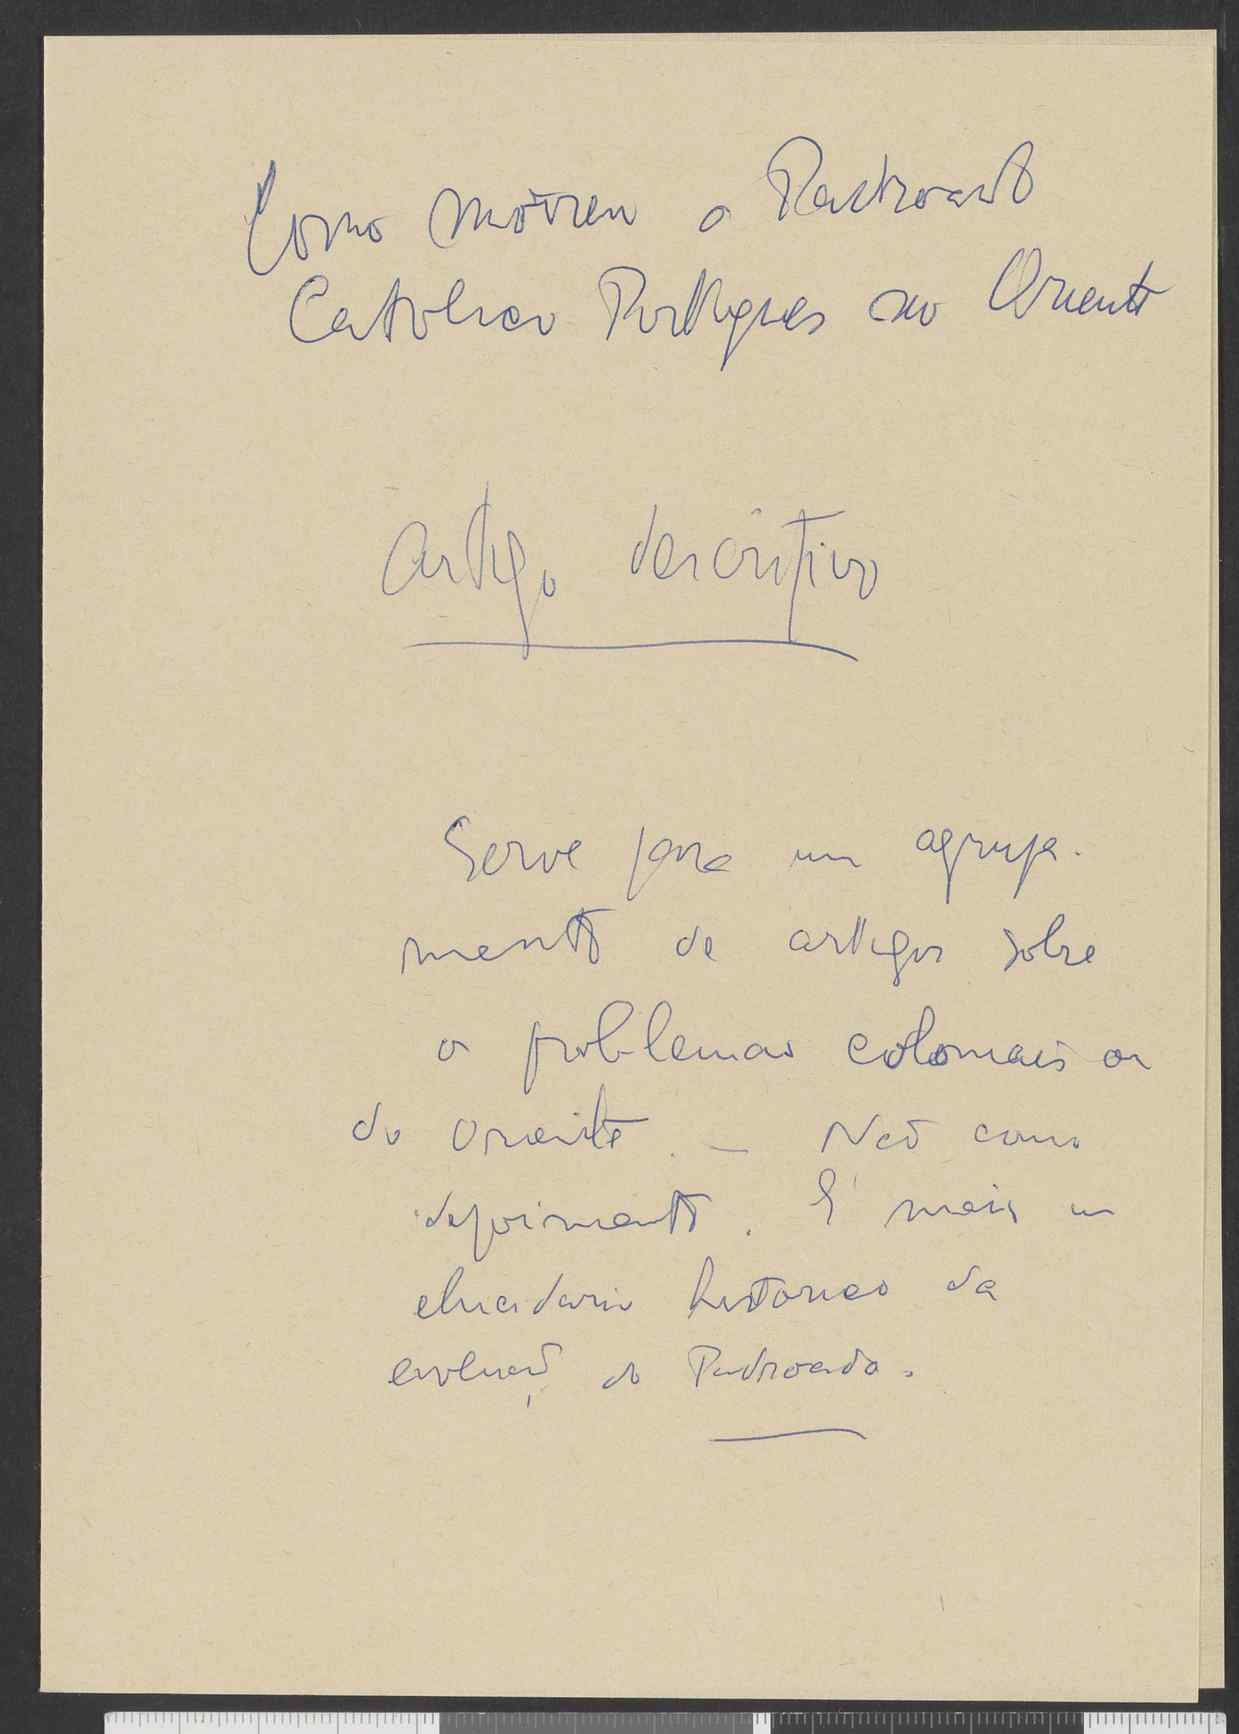 Como morreu o Padroado
Católico Português no Oriente
Artigo descritivo
Serve para um agrupa-
mento de artigos sobre
o problemas coloniais ou
do Oriente. — Não como
depoimento. É mais um
elucidario historico da
evolução do Padroado.